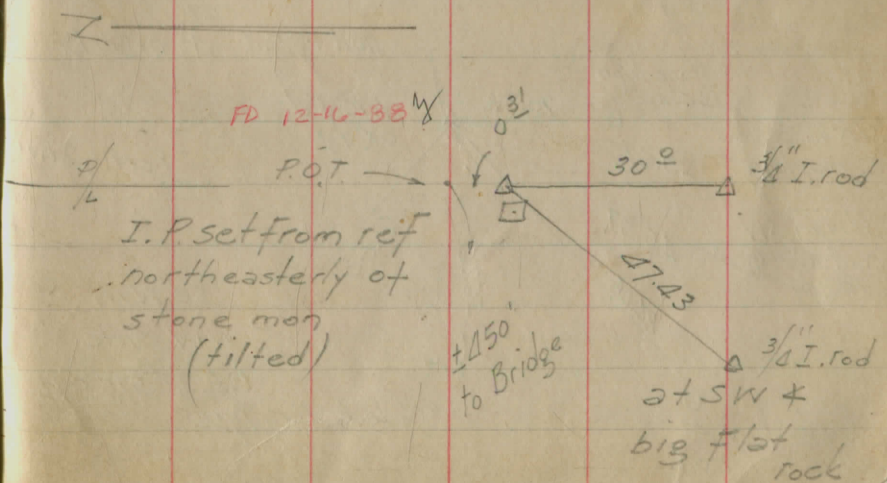 Z
FD 12-16-88
3'
P/L
P.O.T.
30º
3/4" I. rod
I. P. set from ref
northeasterly of
stone mon
(tilted)
47.43
±450'
to Bridge
3/4" I. rod
at SW
big Flat
rock